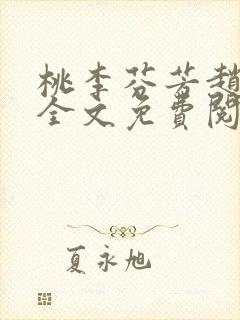 桃李芬芳趙
全文免費閱
夏永旭